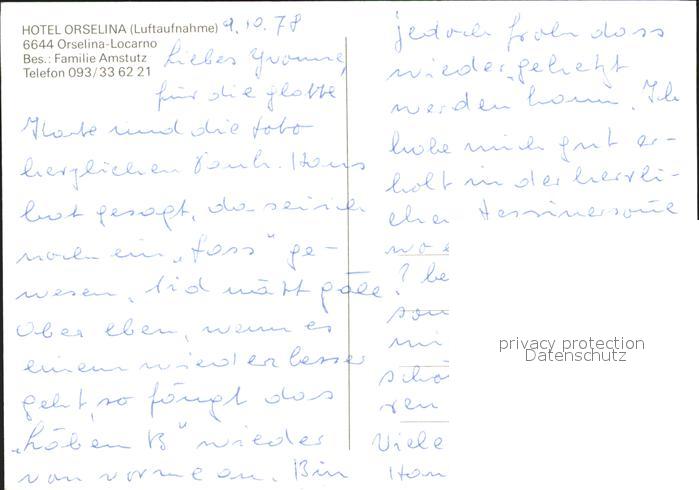 HOTEL ORSELINA (Luftaufnahme)
6644 Orselina-Locarno
Bes.: Familie Amstutz
Telefon 093/33 62 21
9.10.78
Liebes Yvonne,
für die glatte
Karte und die Foto
herzlichen Dank. Hans
hat gesagt, da sei ich
noch ein „Fass" ge-
wesen,
Aber eben, wenn es
einem wieder besser
geht, so fängt das
„Läben B" wieder
von vorne an. Bin
jedoch froh dass
wieder gehetzt
werden kann. Ich
habe mich gut er-
holt in der herrli-
chen Tessinersonne
Viele
privacy protection
Datenschutz